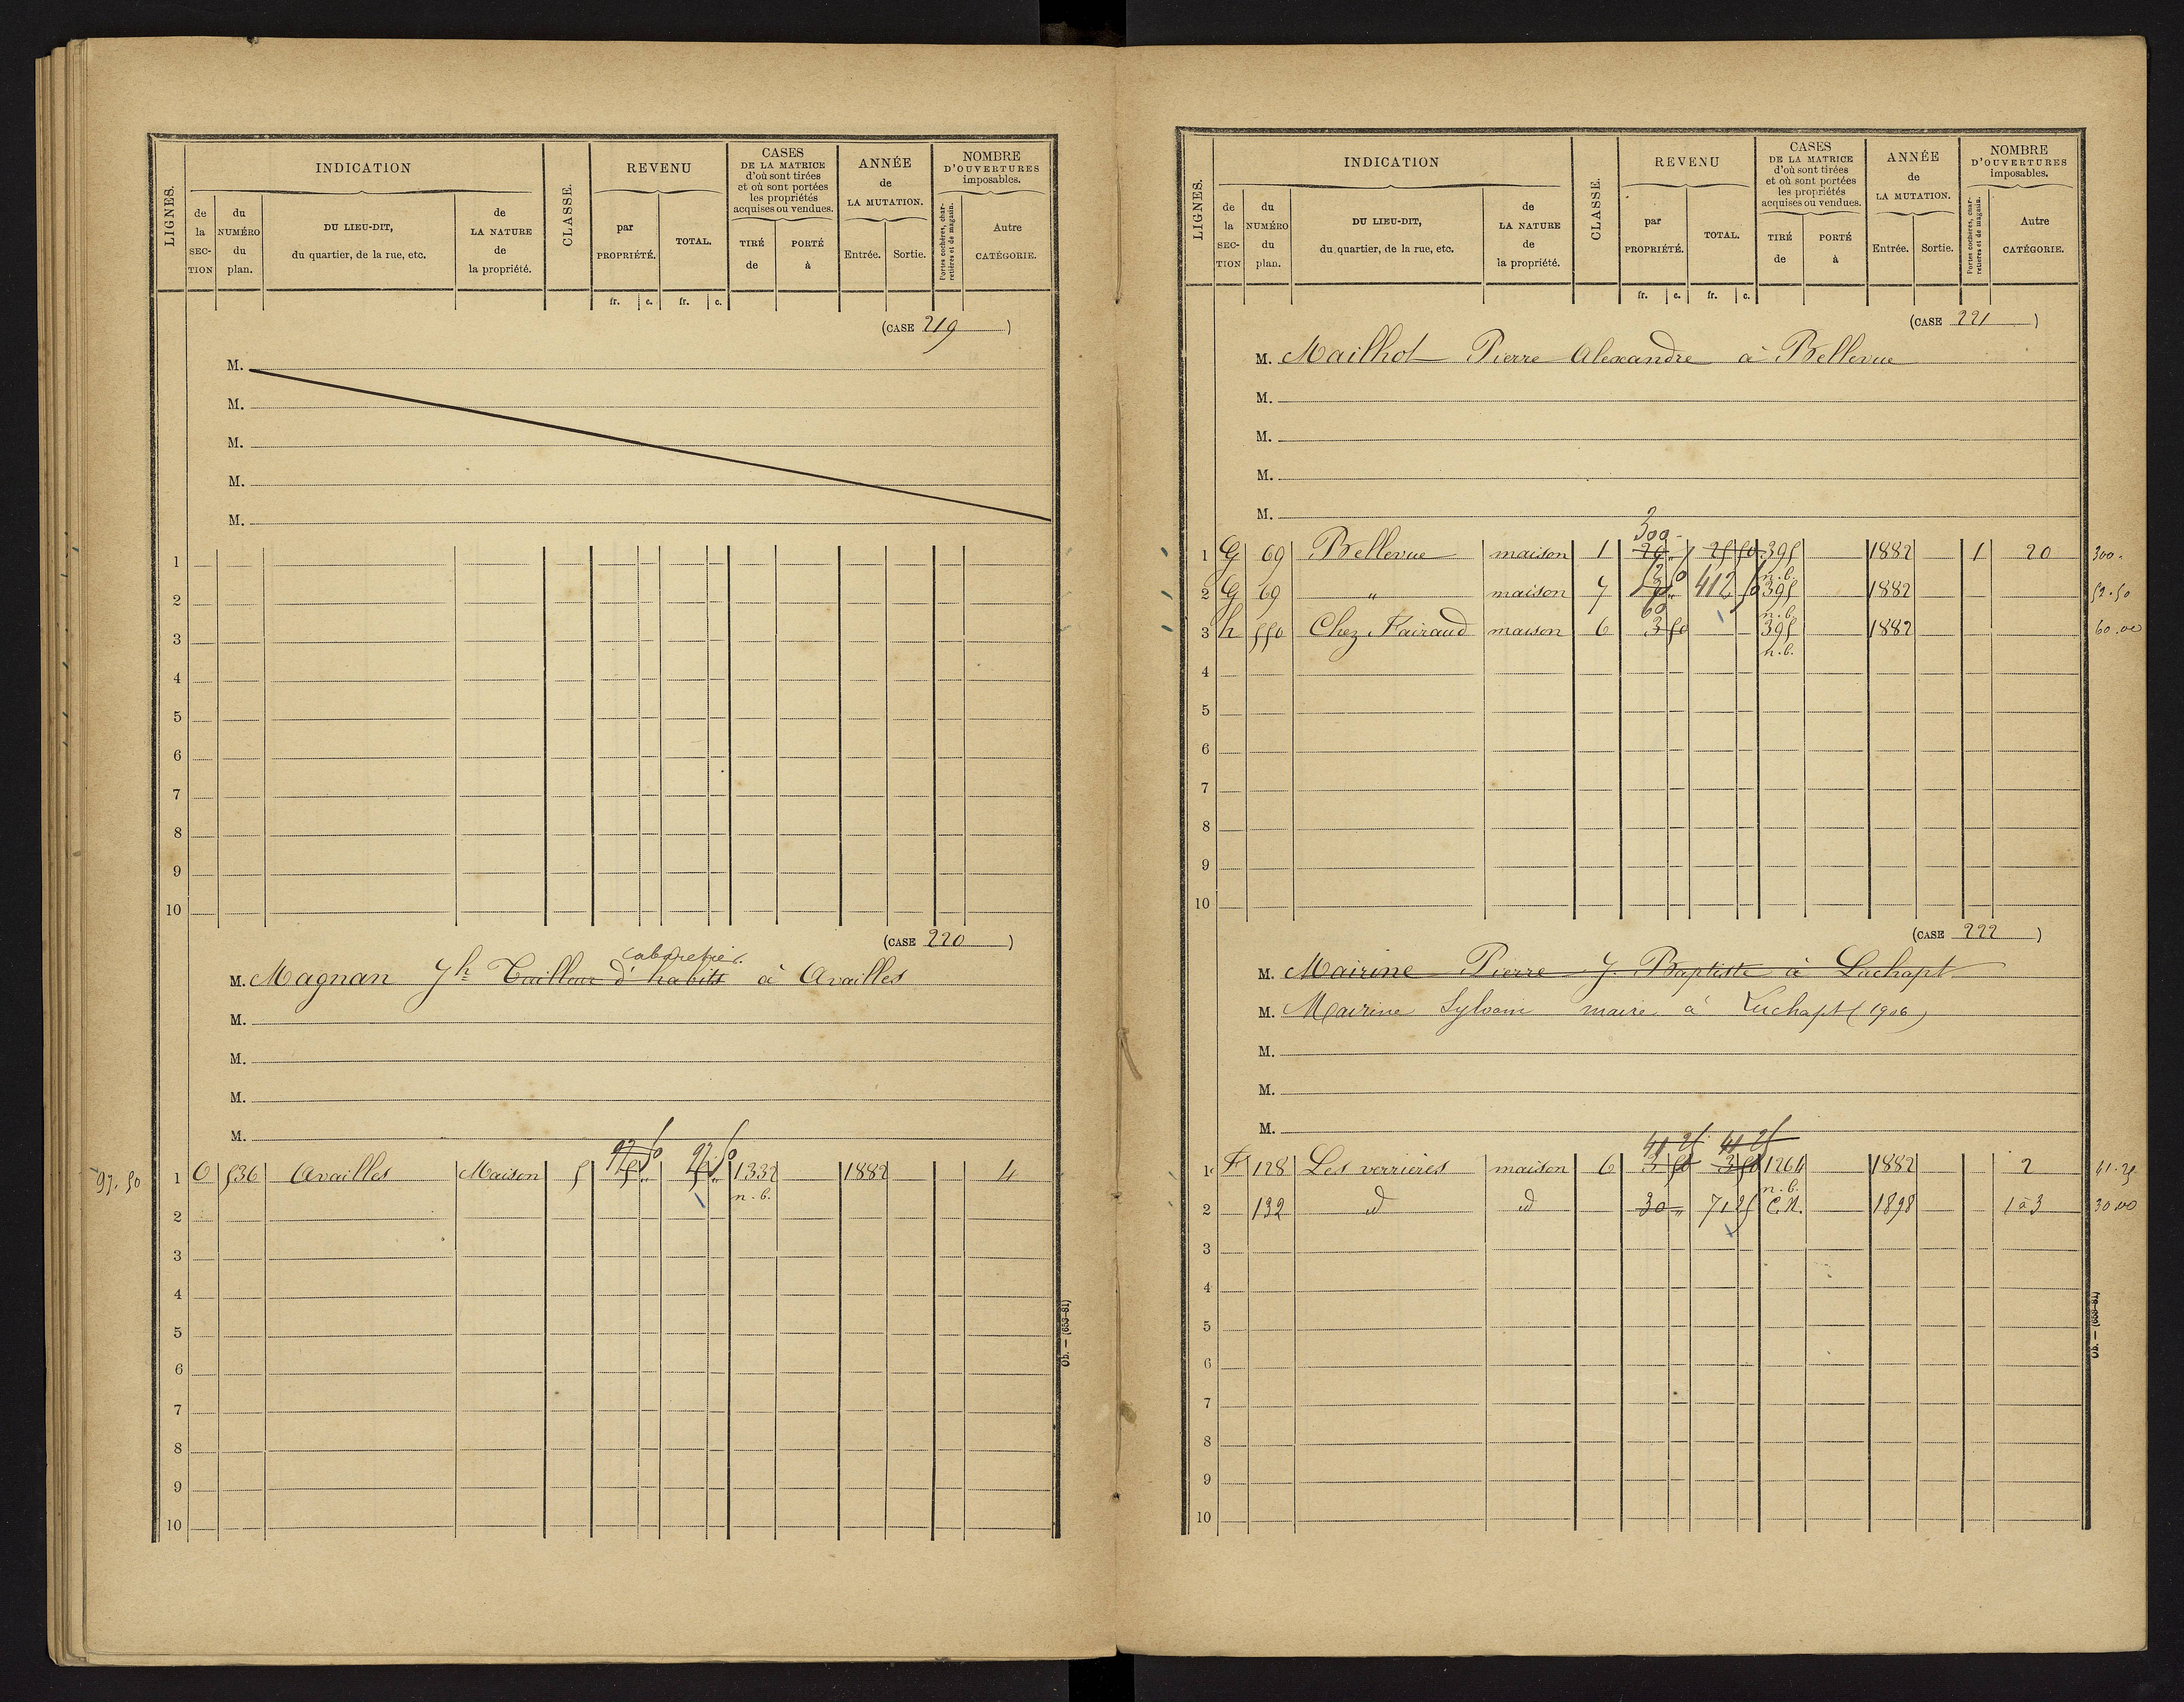 LIGNES.
INDICATION
de la SECTION
du NUMÉRO du plan.
DU LIEU-DIT, du quartier, de la rue, etc.
de LA NATURE de la propriété.
CLASSE.
REVENU
par PROPRIÉTÉ.
TOTAL.
fr. c. fr. c.
CASES DE LA MATRICE d'où sont tirées et où sont portées les propriétés acquises ou vendues.
TIRÉ de
PORTÉ à
ANNÉE de LA MUTATION.
Entrée. Sortie.
NOMBRE D'OUVERTURES imposables.
Portes cochères, charretières et de magasin.
Autre CATÉGORIE.
(CASE 219)
M.
M.
M.
M.
M.
1
2
3
4
5
6
7
8
9
10
(CASE 220)
cabaretier
M. Magnan Jh Tailleur d'habits à Availles
M.
M.
M.
M.
97.50 1 O 536 Availles Maison 5 1332 1882 4
n.b.
2
3
4
5
6
7
8
9
10
Ob. — (653-81)
LIGNES.
INDICATION
de la SECTION
du NUMÉRO du plan.
DU LIEU-DIT, du quartier, de la rue, etc.
de LA NATURE de la propriété.
CLASSE.
REVENU
par PROPRIÉTÉ.
TOTAL.
fr. c. fr. c.
CASES DE LA MATRICE d'où sont tirées et où sont portées les propriétés acquises ou vendues.
TIRÉ de
PORTÉ à
ANNÉE de LA MUTATION.
Entrée. Sortie.
NOMBRE D'OUVERTURES imposables.
Portes cochères, charretières et de magasin.
Autre CATÉGORIE.
(CASE 221)
M. Mailhot Pierre Alexandre à Bellevue
M.
M.
M.
M.
300
1 G 69 Bellevue maison 1 20 25 50 395 1882 1 20 300
n.b.
2 G 69 " maison 7 412 50 395 1882 52.50
60 n.b.
3 h 550 Chez Fairaud maison 6 3 50 395 1882 60.00
n.b.
4
5
6
7
8
9
10
(CASE 222)
M. Mairine Pierre J. Baptiste à Luchapt
M. Mairine Sylvain maire à Luchapt (1906)
M.
M.
M.
41 25 41 25
1 F 128 Les verrieres maison 6 3 50 3 50 1264 1882 2 41.25
n.b.
2 132 id id 30 " 71 25 C.N. 1898 1 à 3 30.00
3
4
5
6
7
8
9
10
Ob. — (653-81)